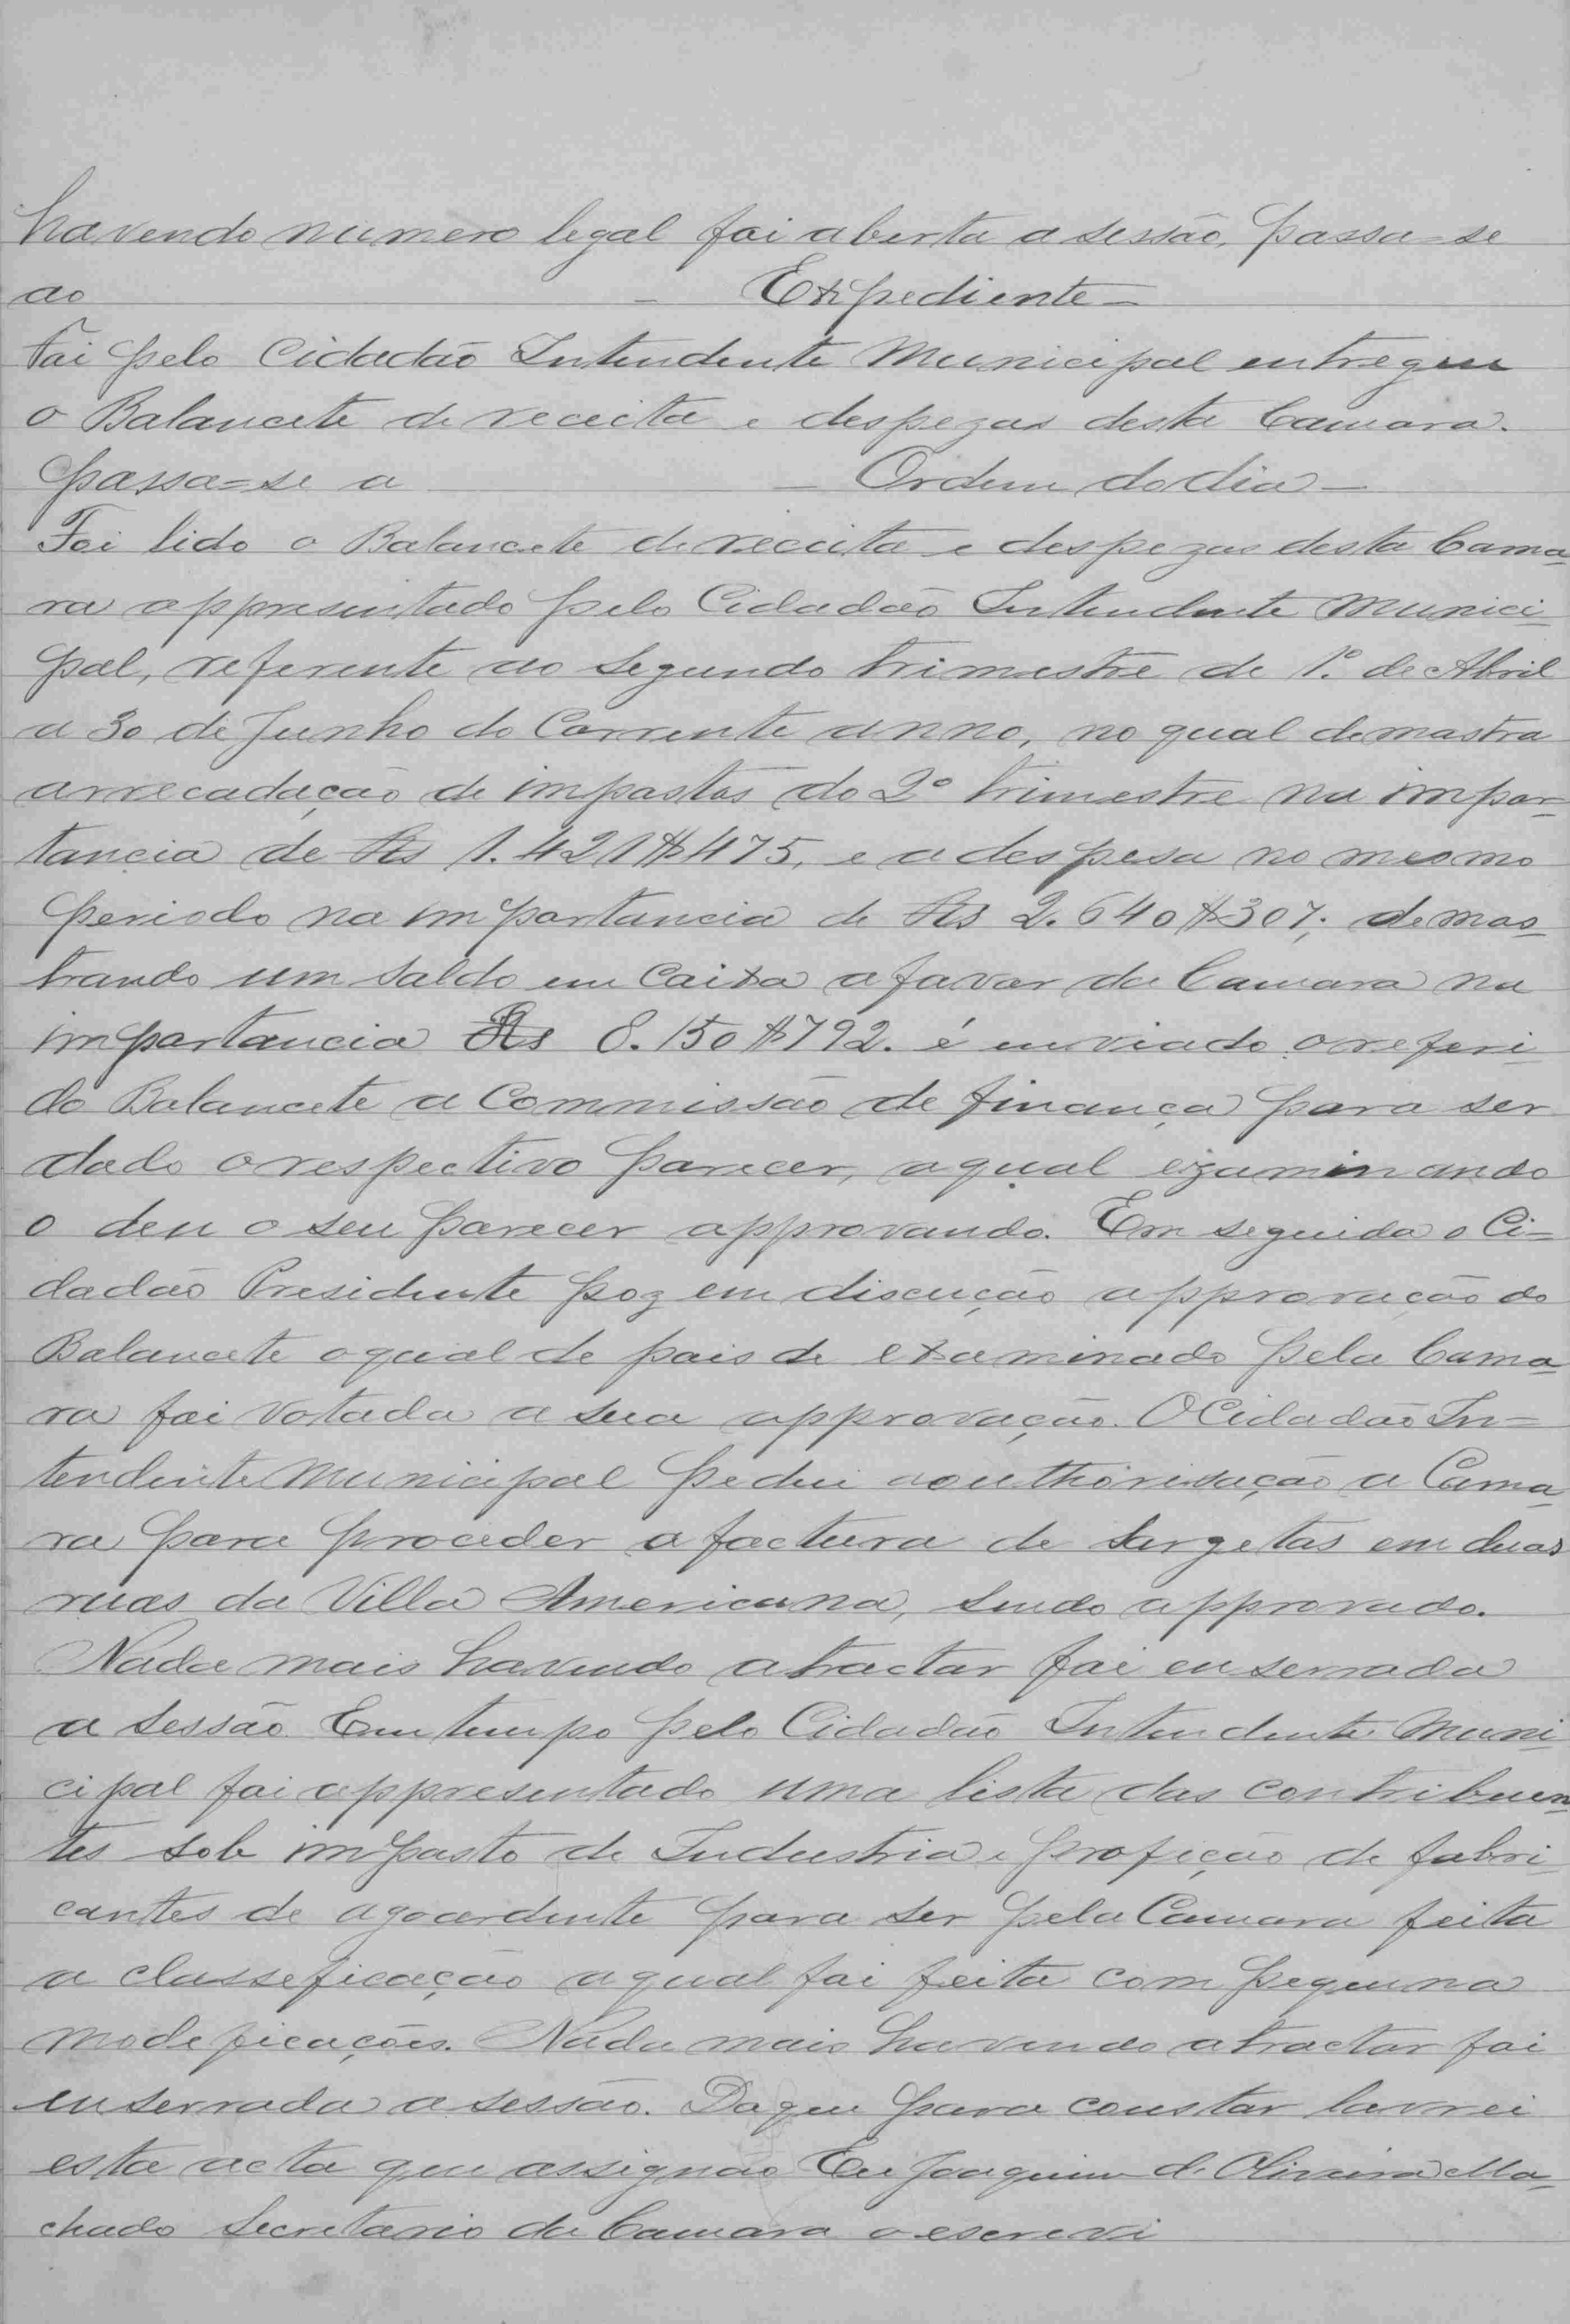 havendo numero legal foi aberta a sessão, passa=se
ao — Expediente —
Foi pelo Cidadão Intendente Municipal entregue
o Balancete de receita e despezas desta Camara.
Passa=se a — Ordem do dia —
Foi lido o Balancete de receita e despezas desta Cama-
ra appresentado pelo Cidadão Intendente Munici-
pal, referente ao segundo trimestre de 1º. de Abril
a 30 de Junho do Corrente anno, no qual demostra
arrecadação de impostos do 2º trimestre na impor-
tancia de Rs 1.421$475, e a despesa no mesmo
periodo na importancia de Rs 2.640$307; demos-
trando um saldo em Caixa a favor da Camara na
importancia Rs 8.150$792. é enviado o referi-
do Balancete a Commissão de finança para ser
dado o respectivo parecer, a qual ezaminando
o deu o seu parecer approvando. Em seguida o Ci-
dadão Presidente poz em discução approvação do
Balancete o qual depois de examinado pela Cama-
ra foi votada a sua approvação. O Cidadão In-
tendente Municipal pediu aouthorisação a Cama-
ra para proceder a factura de sargetas em duas
ruas da Villa Americana, sendo approvado.
Nada mais havendo a tractar foi enserrada
a sessão Em tempo pelo Cidadão Intendente Muni-
cipal foi appresentado uma lista das contribuen-
tes sob imposto de Industria e profição de fabri-
cantes de agoardente para ser pela Camara feita
a classeficação a qual foi feita com pequena
modeficações. Nada mais havendo a tractar foi
enserrada a sessão. Do que para constar lavrei
esta acta que assignão Eu Joaquim de Oliveira Ma-
chado Secretario da Camara o escrevi